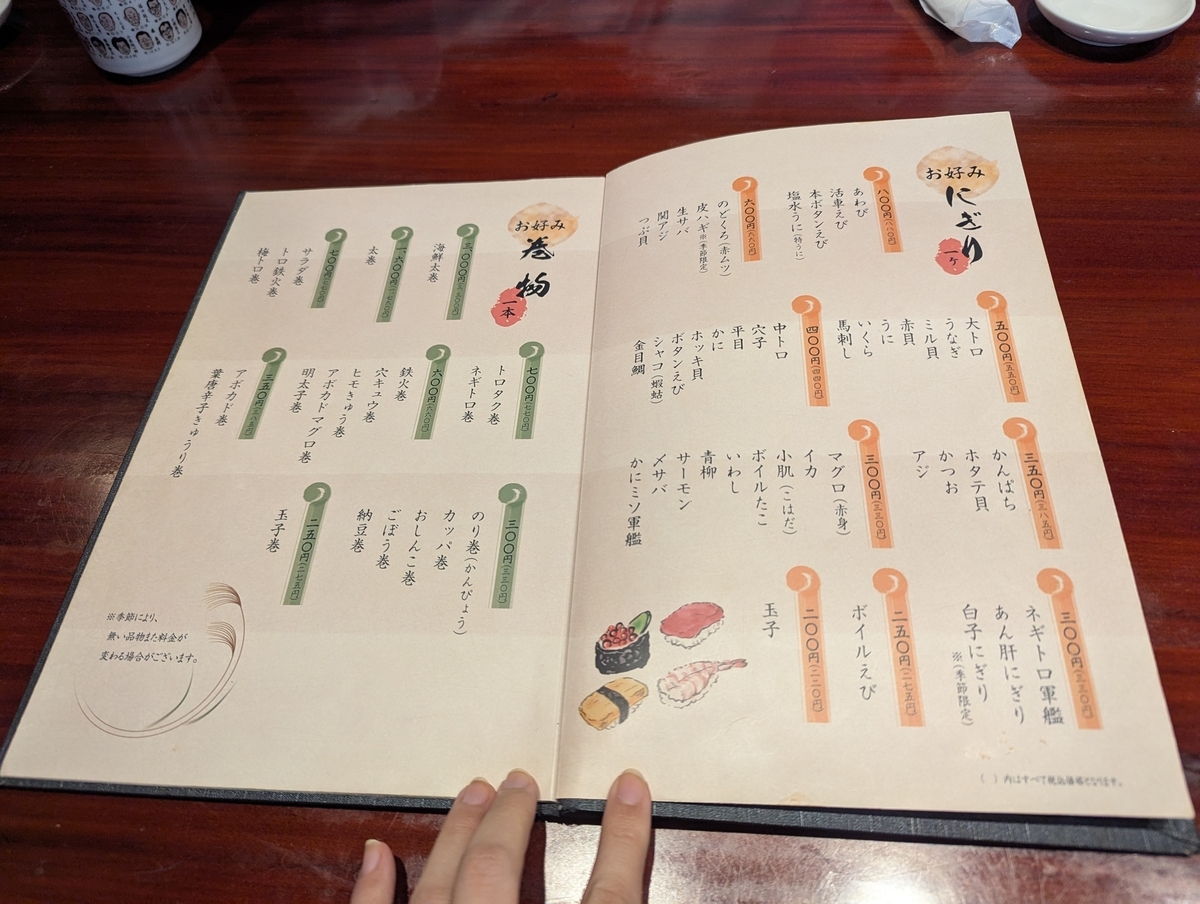 お好み
にぎり
一ヶ
八〇〇円(八八〇円)
あわび
活車えび
本ボタンえび
塩水うに(特うに)
六〇〇円(六六〇円)
のどくろ(赤ムツ)
皮ハギ※(季節限定)
生サバ
関アジ
つぶ貝
五〇〇円(五五〇円)
大トロ
うなぎ
ミル貝
赤貝
うに
いくら
馬刺し
四〇〇円(四四〇円)
中トロ
穴子
平目
かに
ホッキ貝
ボタンえび
シャコ(蝦蛄)
金目鯛
三五〇円(三八五円)
かんぱち
ホタテ貝
かつお
アジ
三〇〇円(三三〇円)
マグロ(赤身)
イカ
小肌(こはだ)
ボイルたこ
いわし
青柳
サーモン
〆サバ
かにミソ軍艦
三〇〇円(三三〇円)
ネギトロ軍艦
あん肝にぎり
白子にぎり
※(季節限定)
二五〇円(二七五円)
ボイルえび
二〇〇円(二二〇円)
玉子
( )内はすべて税込価格となります。
お好み
巻物
一本
海鮮太巻
太巻
七〇〇円(七七〇円)
サラダ巻
トロ鉄火巻
梅トロ巻
七〇〇円(七七〇円)
トロタク巻
ネギトロ巻
六〇〇円(六六〇円)
鉄火巻
穴キュウ巻
ヒモきゅう巻
アボカドマグロ巻
明太子巻
三五〇円(三八五円)
アボカド巻
葉唐辛子きゅうり巻
三〇〇円(三三〇円)
のり巻(かんぴょう)
カッパ巻
おしんこ巻
ごぼう巻
納豆巻
二五〇円(二七五円)
玉子巻
※季節により、
無い品物また料金が
変わる場合がございます。